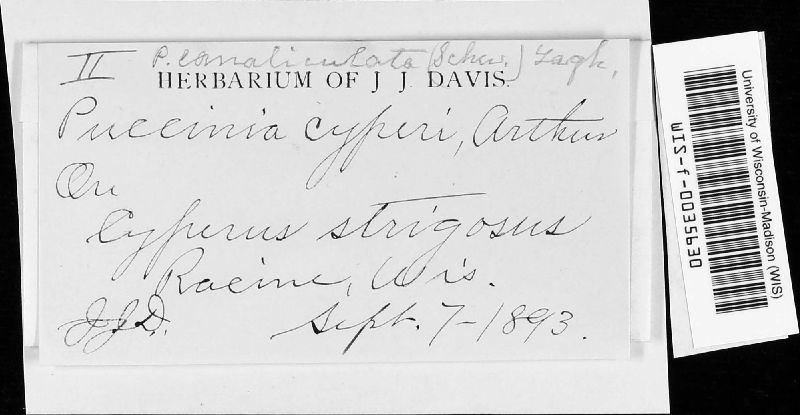 II P. canaliculata (Schw.) Lagh.
HERBARIUM OF J. J. DAVIS.
Puccinia cyperi, Arthur
On
Cyperus strigosus
Racine, Wis.
J.J.D. Sept. 7-1893.
University of Wisconsin-Madison (WIS)
WIS-f-0035930